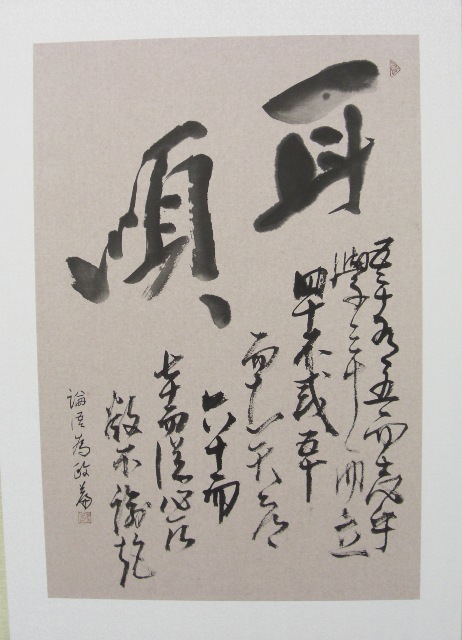 耳
順
吾十有五而志乎
學三十而立
四十不或五十
而知天命
六十而
七十而從心所
欲不踰矩
論語為政篇